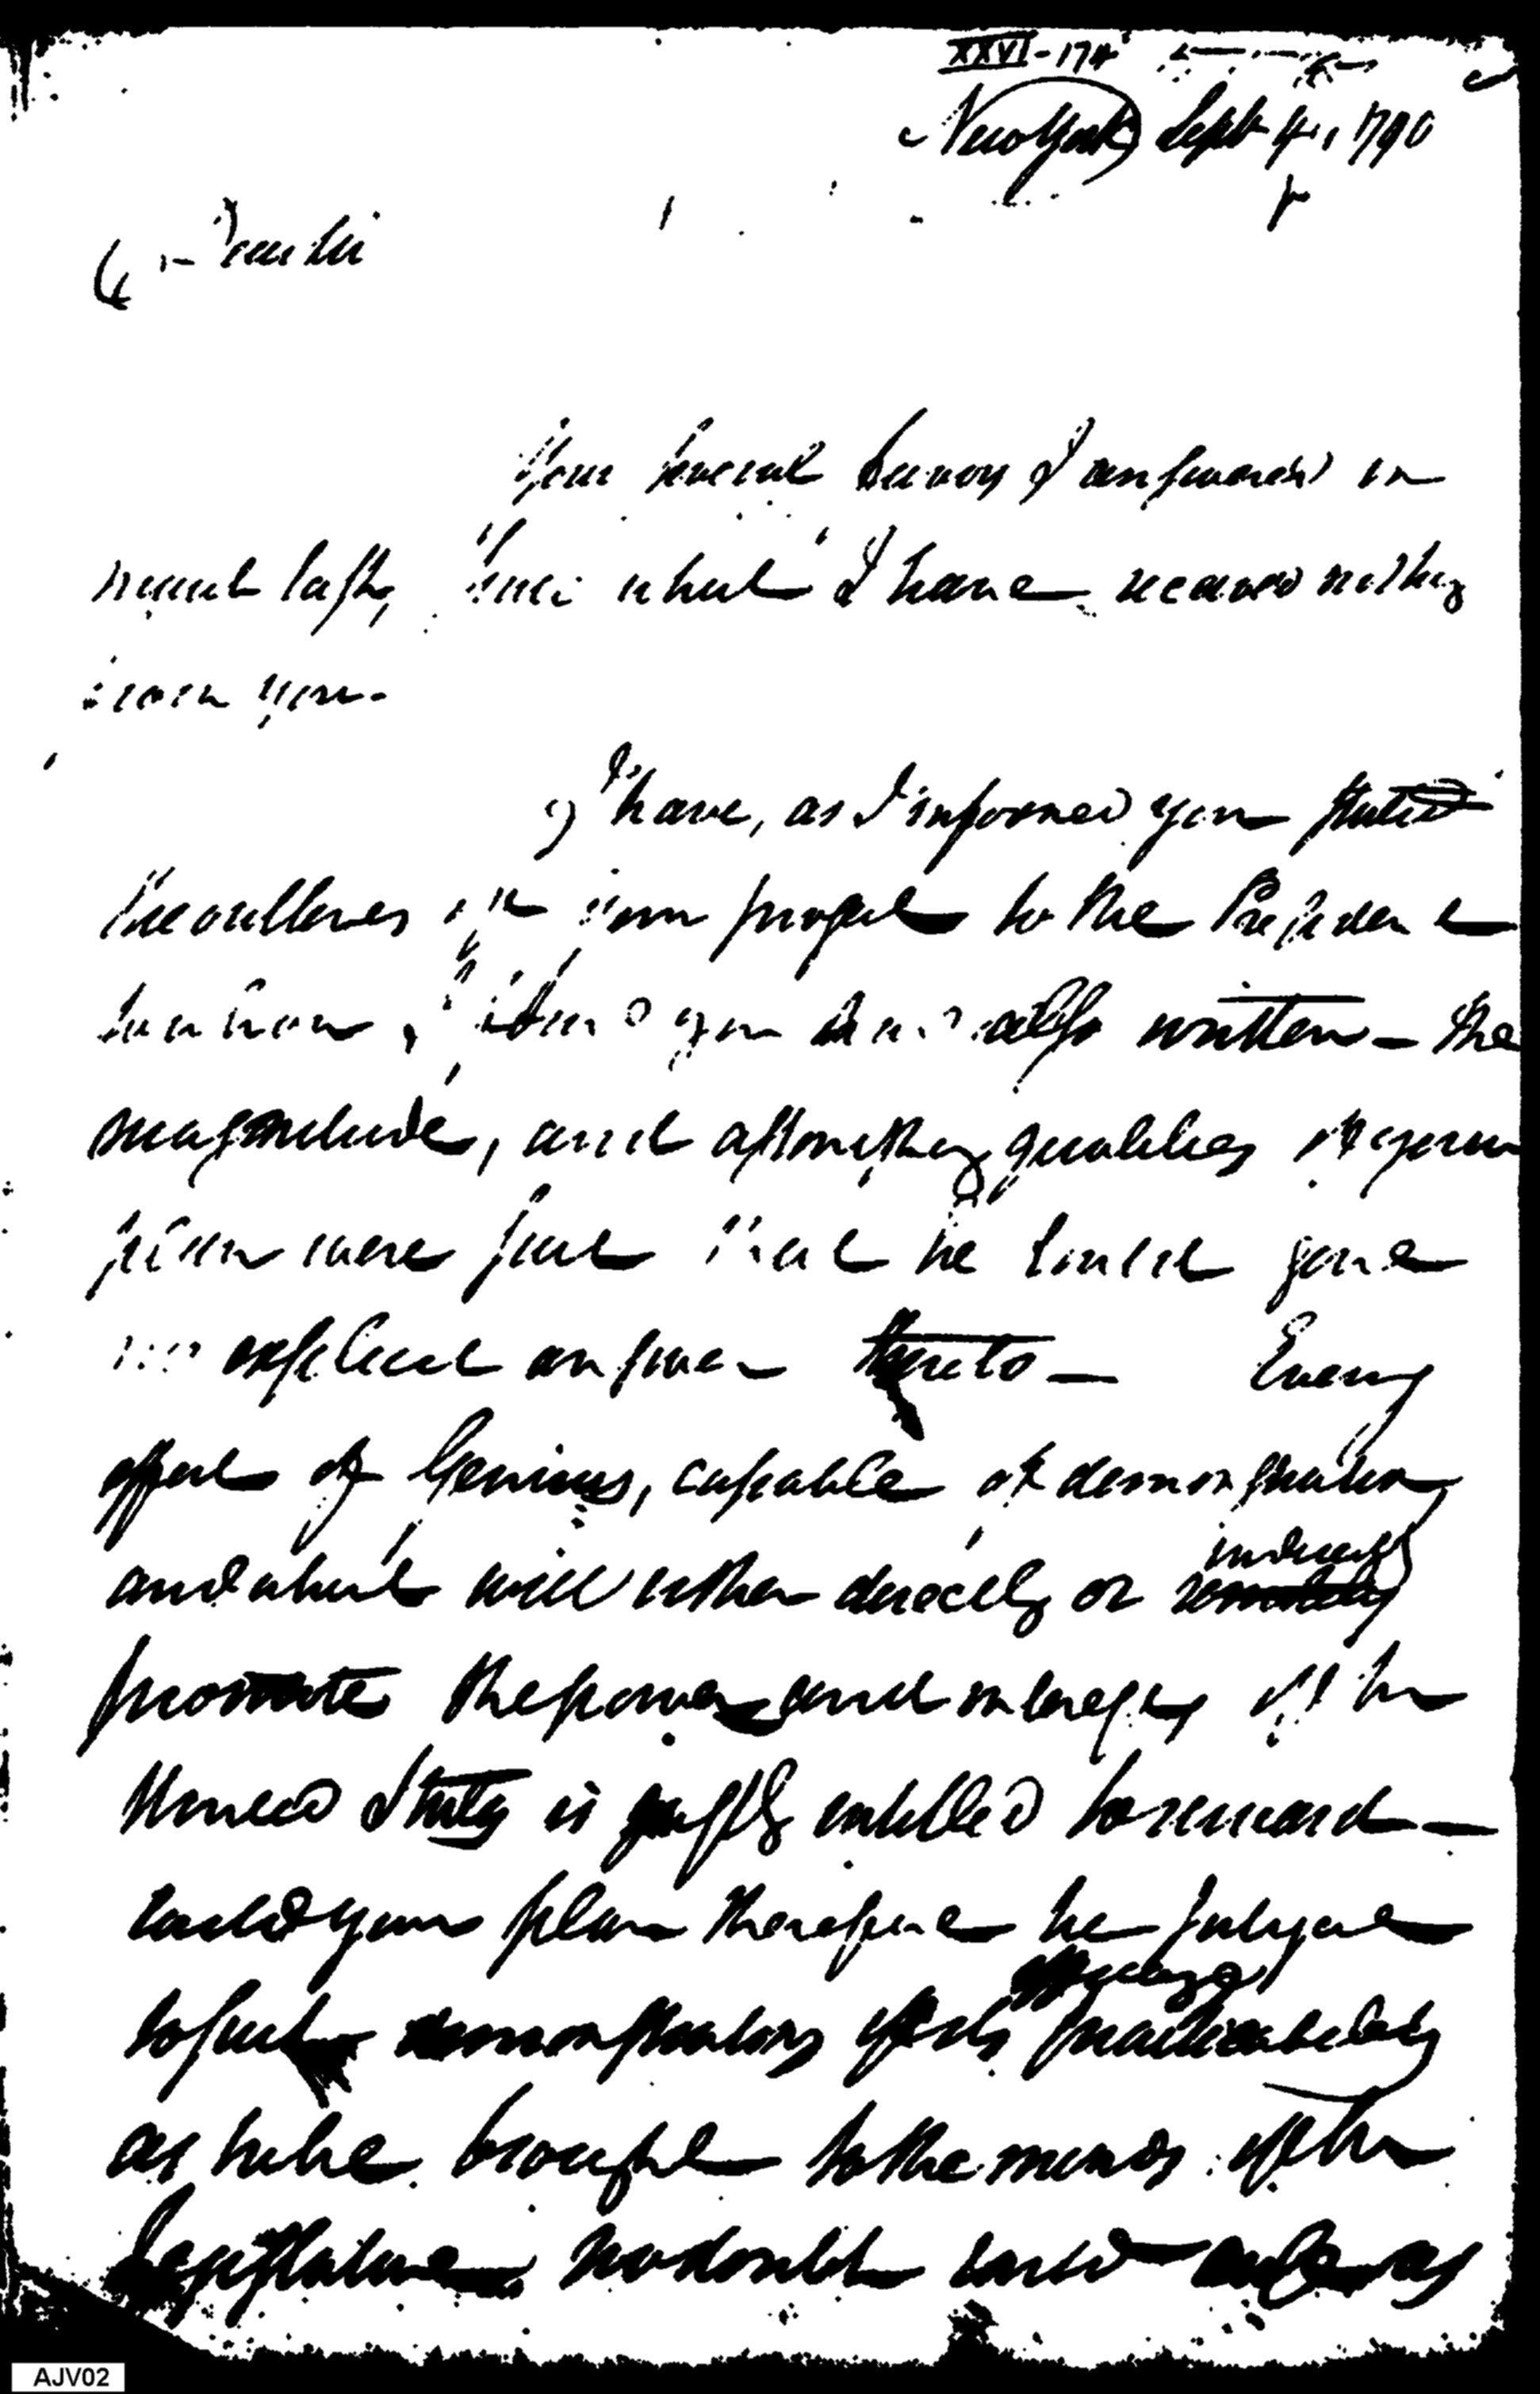 XXVI-174
New York Sept 4, 1790
Dear Sir
Your several favors I answered in
last, since which I have received nothing
from you.
I have, as I informed you stated
the outlines of your project to the President
but how, I told you also written - the
magnitude, and astonishing qualities of your
plan were such that he could give
no explicit answer thereto - Every
effort of Genius, capable of demonstration
and which will either directly or indirectly
promote the power and interests of the
United States is justly entitled to reward -
Could your plan therefore be subject
to such demonstrations of its practicability
as to be brought to the minds of the
Legislature no doubt could
AJV02